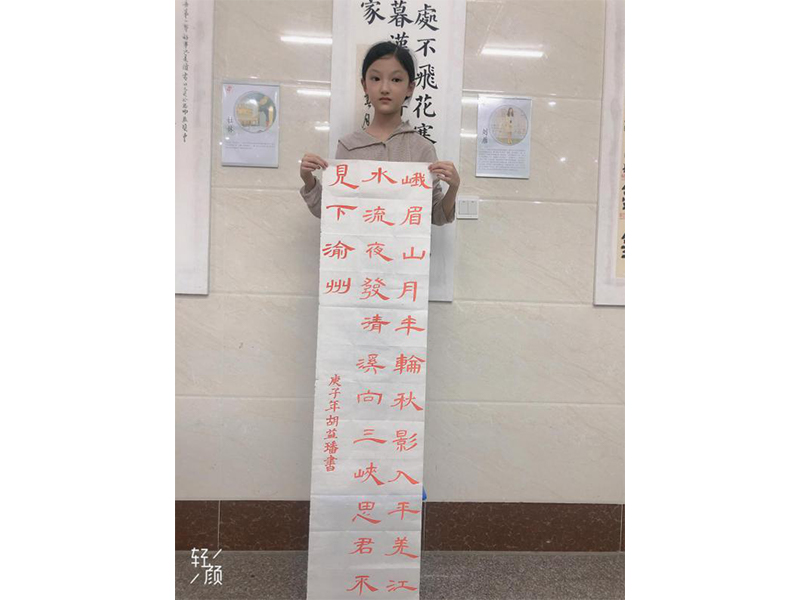 峨眉山月半輪秋影入平羌江
水流夜發清溪向三峽思君不
見下渝州
庚子年胡益璠書
處不飛花寒
暮漢
家
轻颜